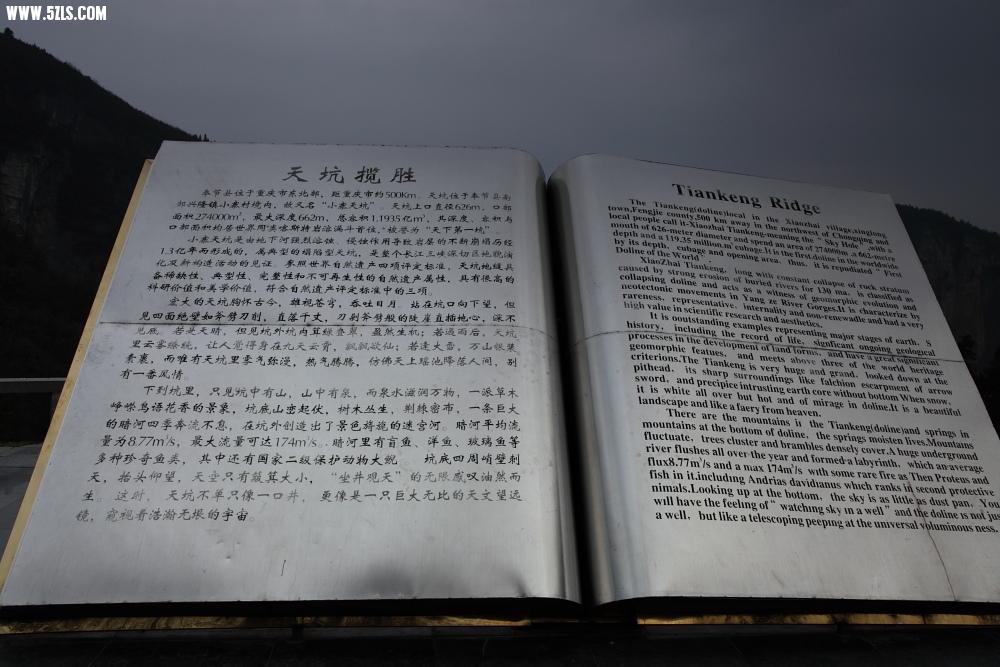 WWW.5ZLS.COM
天坑揽胜
奉节县位于重庆市东北部，距重庆市约500Km。天坑位于奉节县南
部兴隆镇小寨村境内，故又名“小寨天坑”。天坑上口直径626m，口部
面积274000m²，最大深度662m，总容积1.1935亿m³，其深度、容积与
口部面积均居世界同类喀斯特岩溶漏斗首位，“被誉为“天下第一坑”。
小寨天坑是由地下河强烈溶蚀、侵蚀作用导致岩层的不断崩塌历经
1.3亿年而形成的，属典型的塌陷型天坑，是整个长江三峡深切区地貌演
化及新构造活动的见证。参照世界自然遗产四项评定标准，天坑地缝具
备稀缺性、典型性、完整性和不可再生性的自然遗产属性，具有很高的
科研价值和美学价值，符合自然遗产评定标准中的三项。
宏大的天坑胸怀古今，雄视苍穹，吞吐日月。站在坑口向下望，但
见四面绝壁如斧劈刀削，直落千丈，刀剁斧劈般的陡崖直插地心，深不
见底。若是天晴，但见坑外坑内草绿叠翠，盈然生机；若遇雨后，天坑
里云雾缭绕，让人觉得身在九天云霄，飘飘欲仙；若逢大雪，万山银装
素裹，而唯有天坑里雾气弥漫，热气腾腾，仿佛天上瑶池降落人间，别
有一番风情。
下到坑里，只见坑中有山，山中有泉，而泉水滋润万物，一派草木
峥嵘鸟语花香的景象，坑底山峦起伏，树木丛生，荆棘密布，一条巨大
的暗河四季奔流不息，在坑外创造出了景色旖旎的迷宫河。暗河平均流
量为8.77m³/s，最大流量可达174m³/s。暗河里有盲鱼、洋鱼、玻璃鱼等
多种珍奇鱼类，其中还有国家二级保护动物大鲵。坑底四周峭壁刺
天，抬头仰望，天空只有簸箕大小，“坐井观天”的无限感叹油然而
生。这时，天坑不单只像一口井，更像是一只巨大无比的天文望远
镜，窥视着浩瀚无垠的宇宙。
Tiankeng Ridge
The Tiankeng(doline)local in the Xiaozhai village,xinglong
town,Fengjie county,500 km away in the northwest of Chongqing and
local people call it-Xiaozhai Tiankeng-meaning the "Sky Hole" with a
mouth of 626-meter diameter and spend an area of 274000m²,a 662-metre
depth and a 119.35 million m³ cubage.It is the first doline in the worldwide
by its depth, cubage and opening area. thus, it is republished "First
Doline of the World".
XiaoZhai Tiankeng, long with constant collapse of rock stratum
caused by strong erosion of buried rivers for 130 ma, is classified as
collapsing doline and acts as a witness of geomorphic evolution and
neotectonic movements in Yang ze River Gorges.It is characterize by
rareness, representative, internality and non-renewadle and had a very
high value in scientific research and aesthetics.
It is oustanding examples representing major stages of earth. S
history, including the record of life, signficant ongoing geological
processes in the development of land forms, and have a great significant
geomorphic featues, and meets above three of the world heritage
criterions.The Tiankeng is very huge and grand, looked down at the
pithead, its sharp surroundings like falchion escarpment of arrow
sword, and precipice intrusing earth core without bottom When snow,
it is white all over but hot and of mirage in doline.It is a beautiful
landscape and like a faery from heaven.
There are the mountains it the Tiankeng(doline)and springs in
mountains at the bottom of doline, the springs moisten lives.Mountains
fluctuate, trees cluster and brambles densely cover.A huge underground
river flushes all over the year and formed a labyrinth, which an average
flux8.77m³/s and a max 174m³/s wth some rare fire as Then Proteus and
fish in it.including Andrias davidianus which ranks in second protective
nimals.Looking up at the bottom, the sky is as little as dust pan. You
will have the feeling of "watching sky in a well" and the doline is not just
a well, but like a telescoping peeping at the universal voluminous ness.